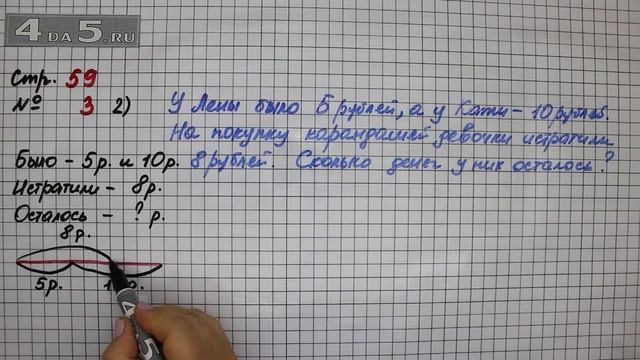 4 DA 5.RU
Стр. 59
№ 3 2) У Лены было 5 рублей, а у Кати - 10 рублей.
На покупку карандашей девочки истратили
8 рублей. Сколько денег у них осталось?
Было - 5р. и 10р.
Истратили - 8р.
Осталось - ? р.
8р.
5р.
4 5